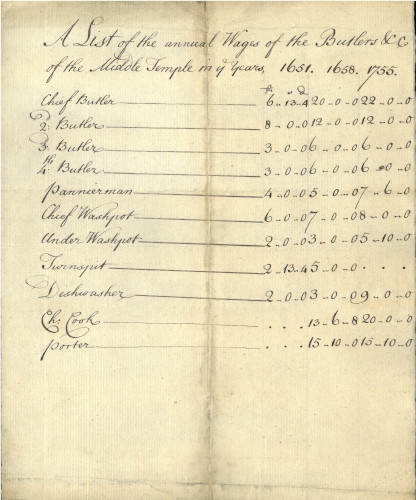 A List of the annual Wages of the Butlers &c
of the Middle Temple in yͤ Years, 1651. 1658. 1755.
£ s d
Chief Butler 6..13..4 20..0..0 22..0..0
2: Butler 8..0..0 12..0..0 12..0..0
3: Butler 3..0..0 6..0..0 6..0..0
4:th Butler 3..0..0 6..0..0 6..0..0
Pannierman 4..0..0 5..0..0 7..6..0
Chief Washpot 6..0..0 7..0..0 8..0..0
Under Washpot 2..0..0 3..0..0 5..10..0
Turnspit 2..13..4 5..0..0 . . .
Dishwasher 2..0..0 3..0..0 9..0..0
Ch: Cook . . . 13..6..8 20..0..0
Porter . . . 15..10..0 15..10..0